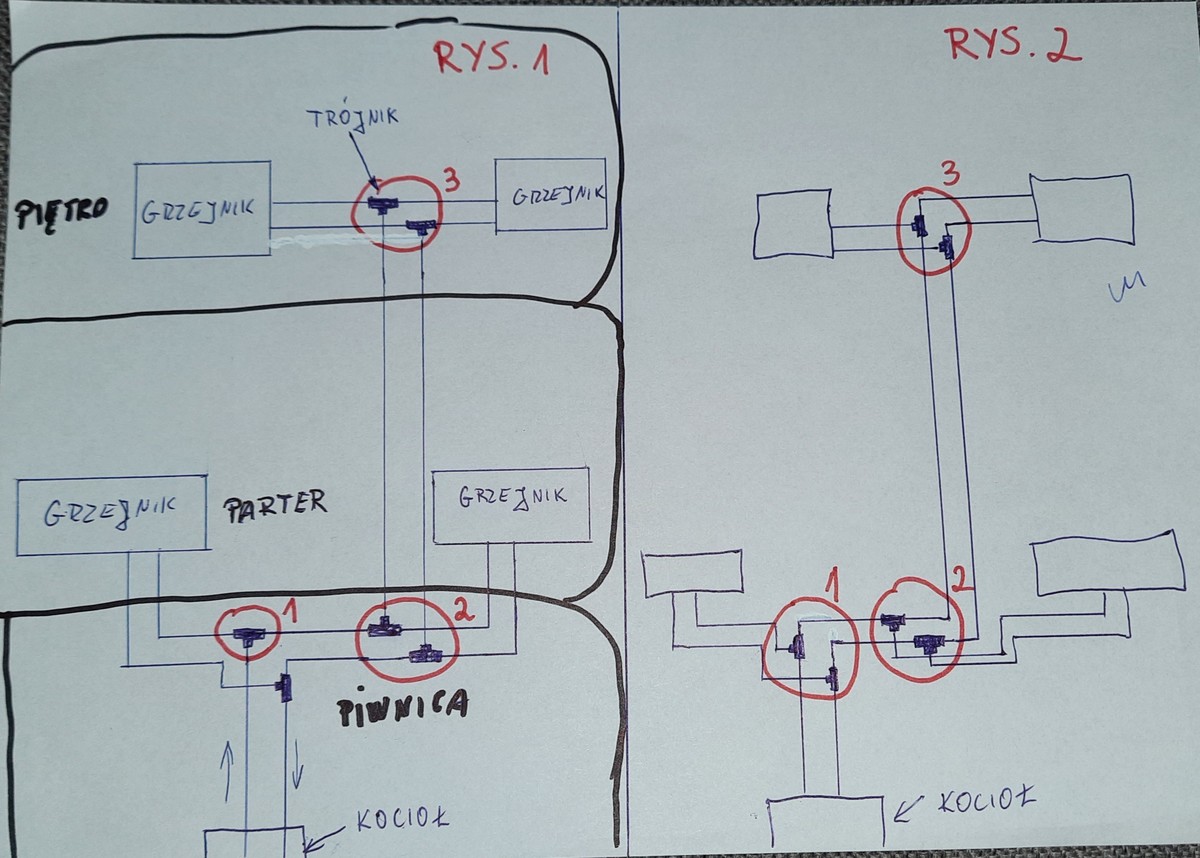 RYS. 1
TRÓJNIK
3
GRZEJNIK
GRZEJNIK
PIĘTRO
GRZEJNIK
PARTER
GRZEJNIK
1
2
PIWNICA
KOCIOŁ
RYS. 2
3
1
2
KOCIOŁ